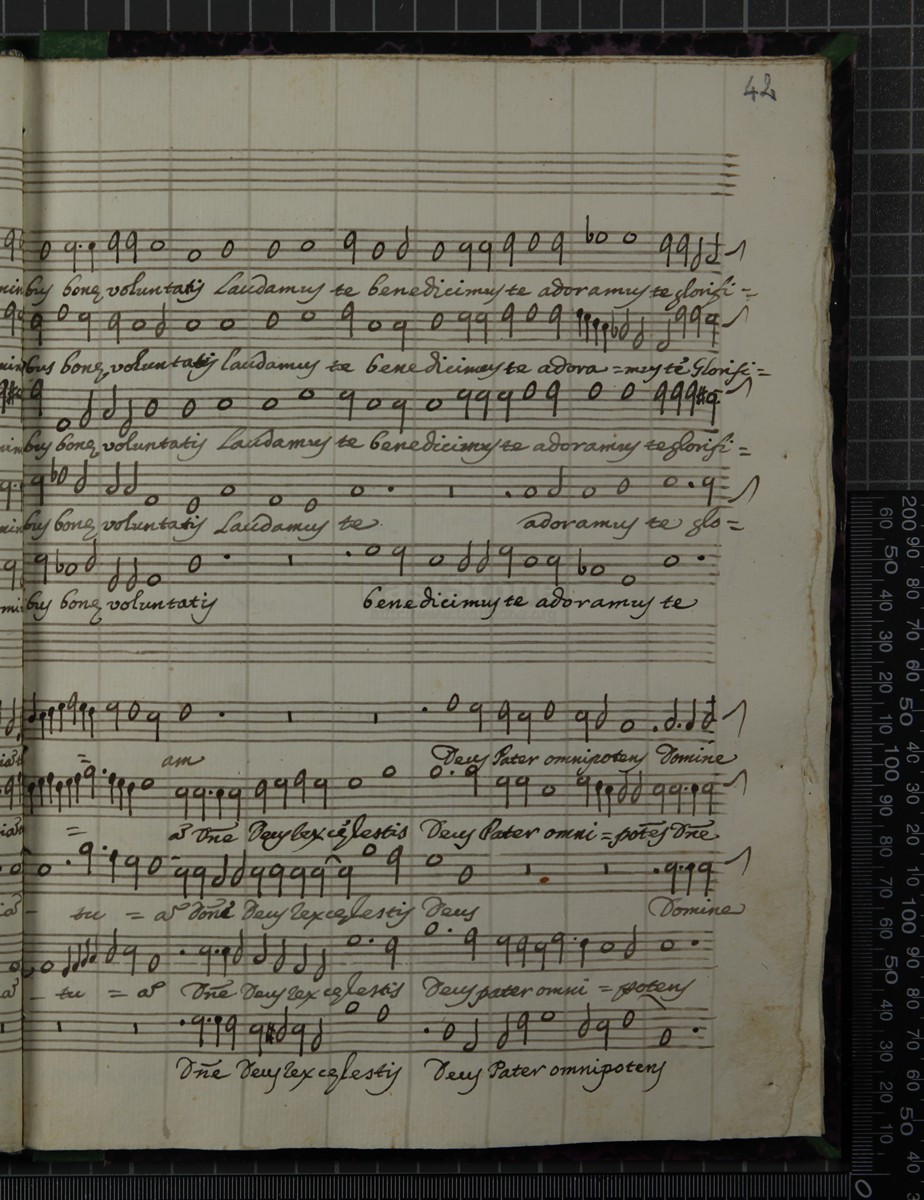 42
bus bonę voluntatis Laudamus te benedicimus te adoramus te glorifi=
bus bonę voluntatis laudamus te benedicimus te adora=mus te Glorifi=
bus bonę voluntatis Laudamus te benedicimus te adoramus te glorifi=
bus bonę voluntatis Laudamus te adoramus te glo=
bus bonę voluntatis benedicimus te adoramus te
= am Deus Pater omnipotens Domine
= a᷃ Dn̄e Deus rex cęlestis Deus Pater omni=pote᷃s Dn̄e
- tu = a᷃ Deus rex cęlestis Deus Domine
- tu = a᷃ Dn̄e Deus rex cęlestis Deus pater omni=potens
Dn̄e Deus rex cęlestis Deus Pater omnipotens
200
90
80
70
60
50
40
30
20
10
100
90
80
70
60
50
40
60
50
40
30
20
10
100
90
80
70
60
50
40
30
20
10
0